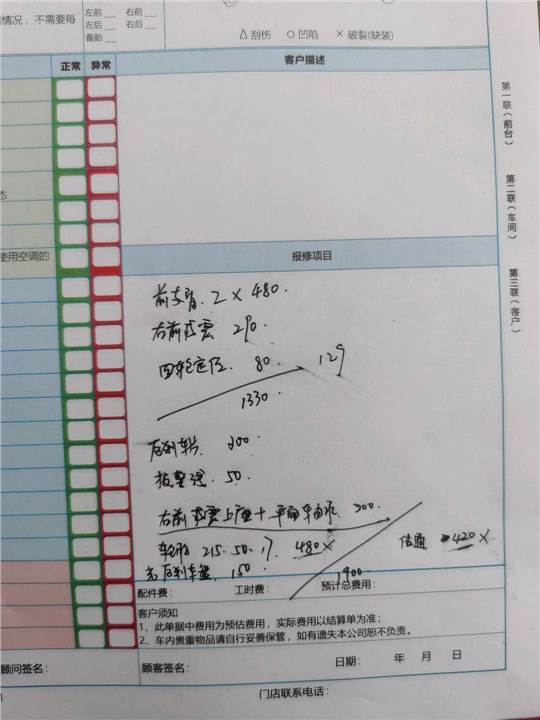 情况，不需要每
左前 右前
左后 右后
备胎
Δ 刮伤 ○ 凹陷 × 破裂(缺装)
正常 异常 客户描述
第一联(前台)
第二联(车间)
第三联(客户)
态
使用空调的
报修项目
前支臂. 2 × 480.
右前减震 290.
四轮定位. 80. 129
1330.
后刹车片 200.
报警线. 50.
右前减震上座+平面轴承. 300.
轮胎 215. 50. 17. 480× 佳通 420×
后刹车盘 150
1900.
配件费： 工时费： 预计总费用：
客户须知
1、此单据中费用为预估费用，实际费用以结算单为准；
2、车内贵重物品请自行妥善保管，如有遗失本公司恕不负责。
顾问签名： 顾客签名： 日期： 年 月 日
门店联系电话：